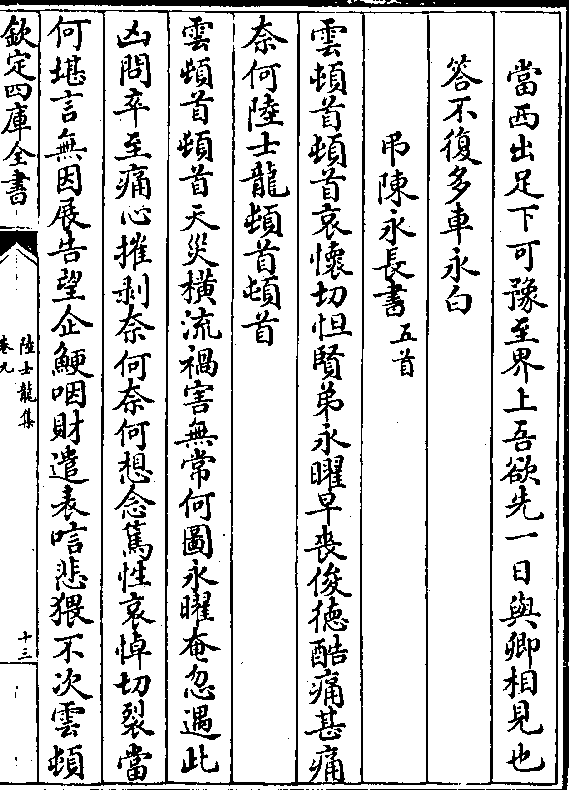 當西出足下可豫至界上吾欲先一日與卿相見也
答不復多車永白
弔陳永長書五首
雲頓首頓首哀懷切怛賢弟永曜早喪俊德酷痛甚痛
奈何陸士龍頓首頓首
雲頓首頓首天災橫流禍害無常何圖永曜奄忽遇此
凶問卒至痛心摧剥奈何奈何想念篤性哀悼切裂當
何堪言無因展告望企鯁咽財遣表唁悲猥不次雲頓
欽定四庫全書
陸士龍集
卷九
十三